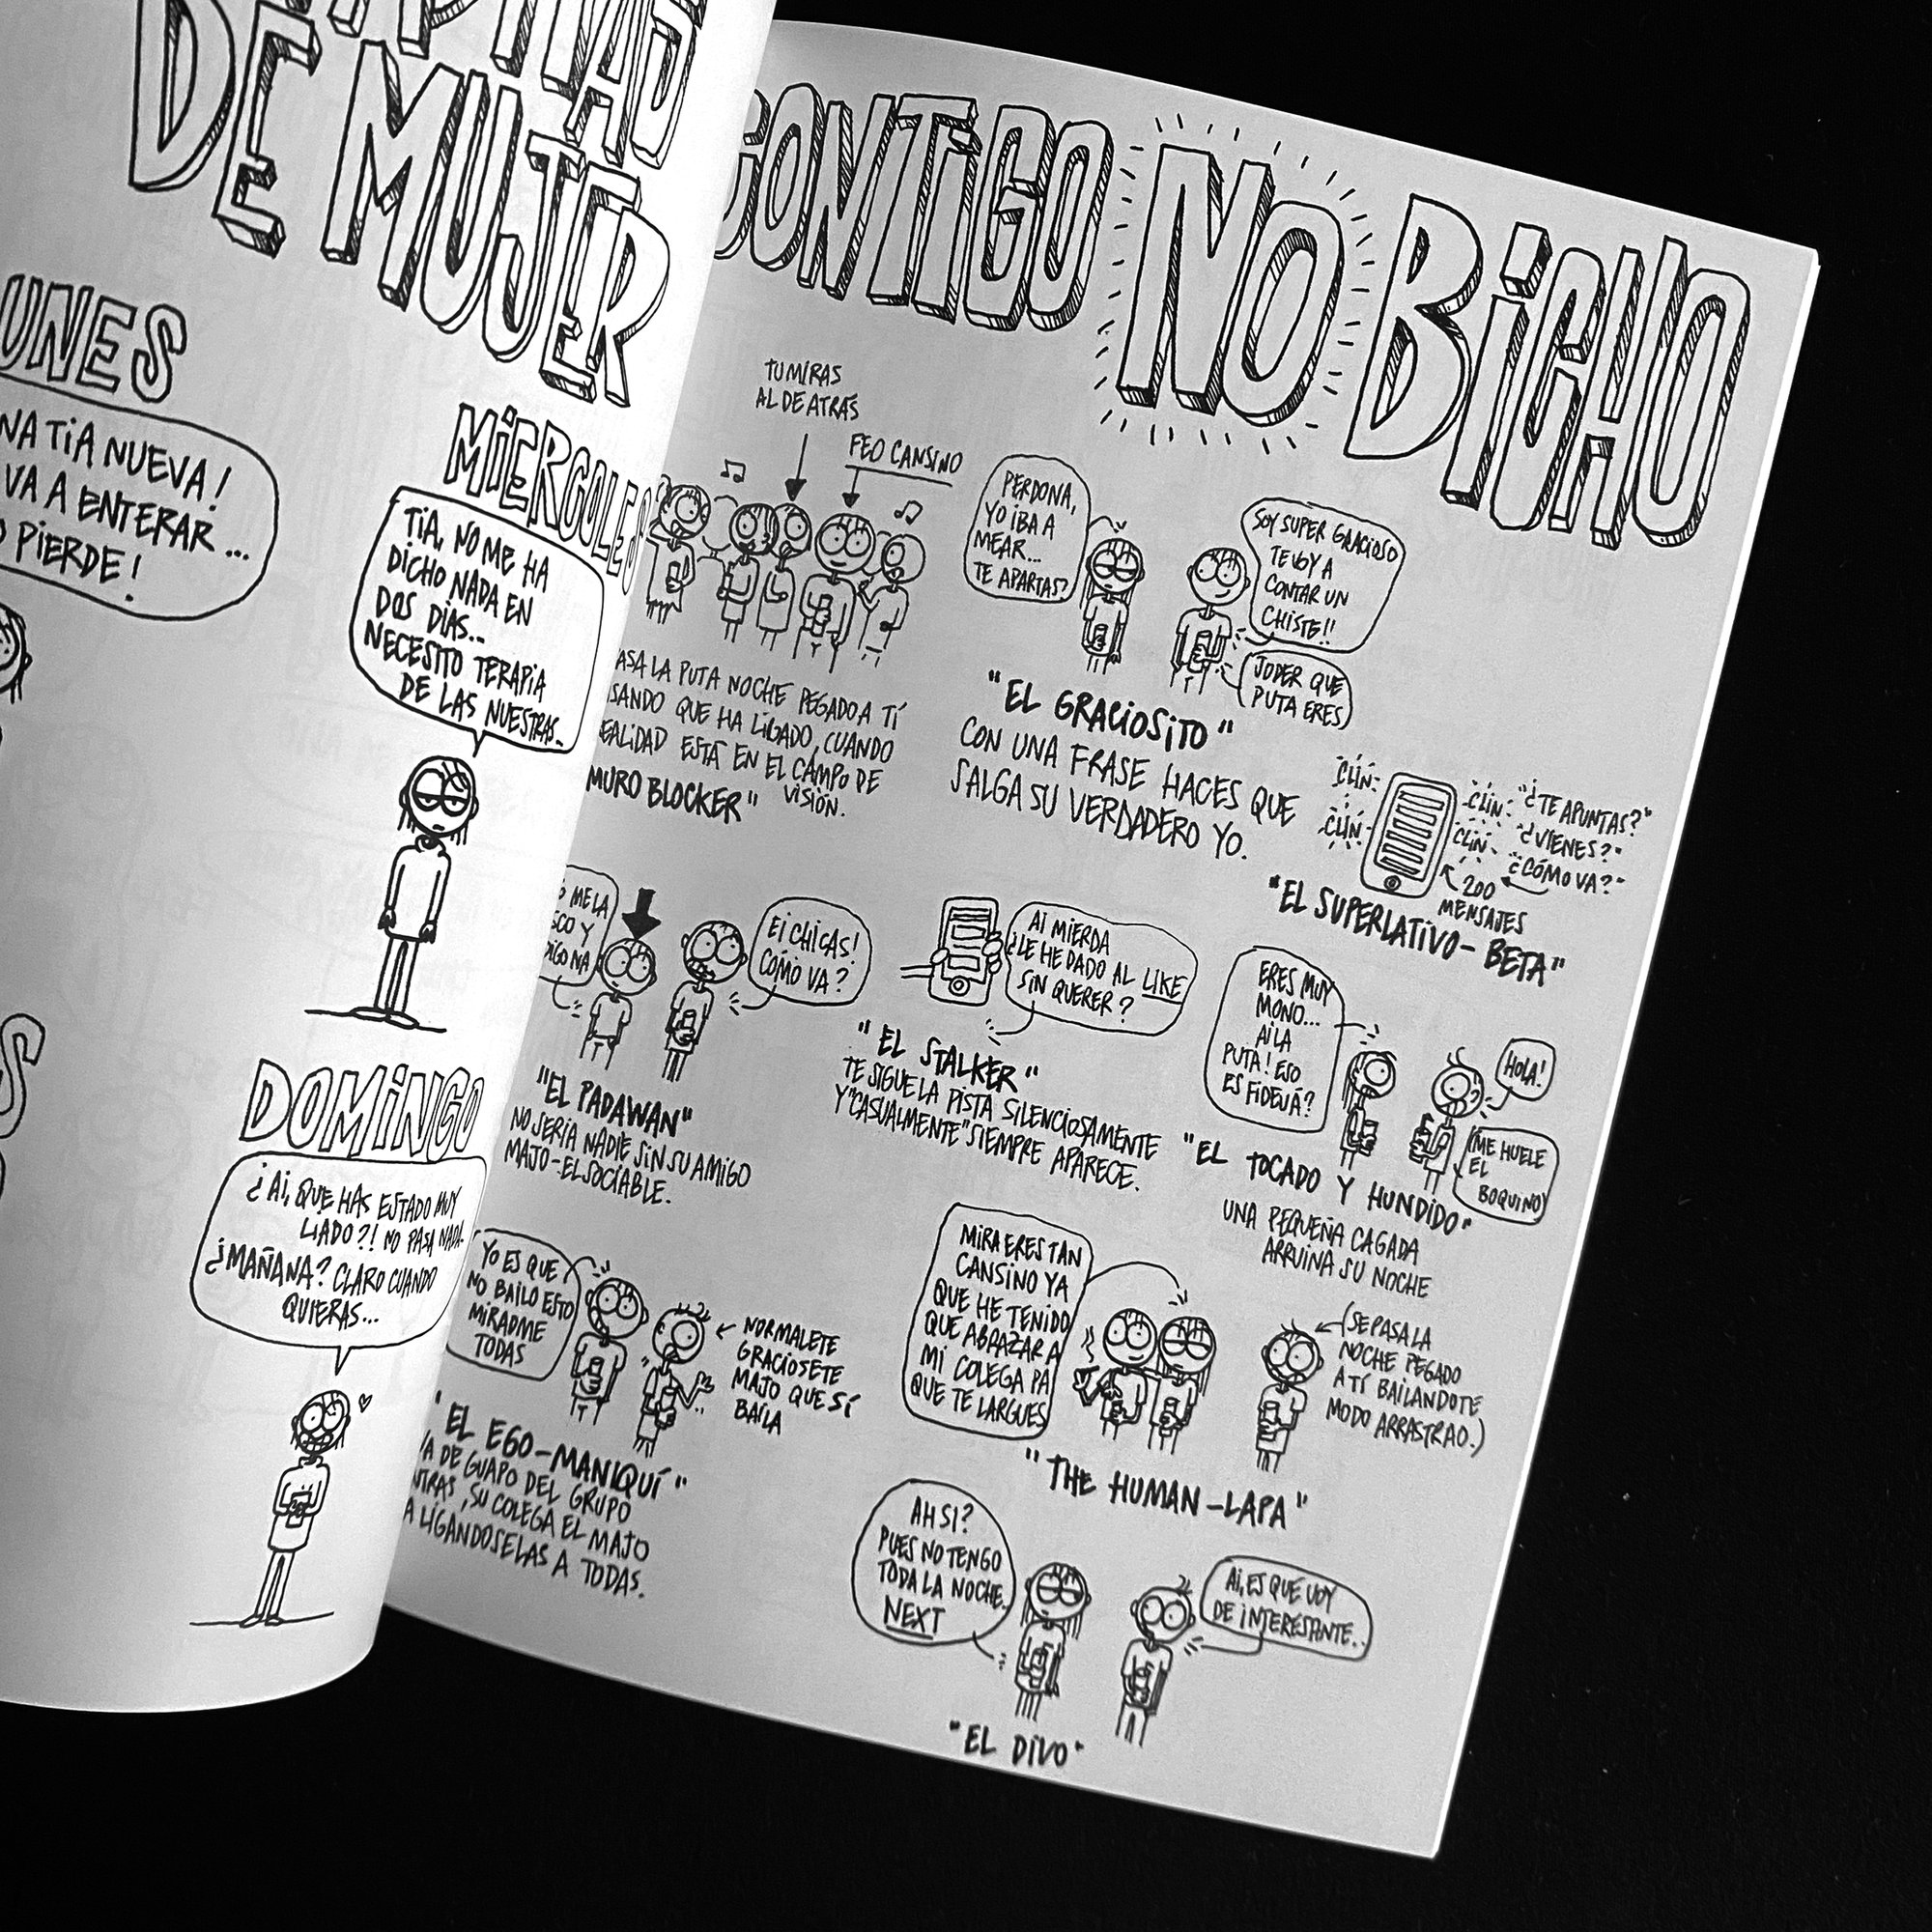 DE MUJER
UNES
NA TIA NUEVA!
VA A ENTERAR...
PIERDE!
MIERCOLES
TIA, NO ME HA
DICHO NADA EN
DOS DIAS..
NECESITO TERAPIA
DE LAS NUESTRAS..
DOMINGO
¿AI, QUE HAS ESTADO MUY
LIADO?! NO PASA NADA.
¿MAÑANA? CLARO CUANDO
QUIERAS...
CONTIGO NO BICHO
TU MIRAS
AL DE ATRAS
FEO CANSINO
ASA LA PUTA NOCHE PEGADO A TÍ
SANDO QUE HA LIGADO, CUANDO
EALIDAD ESTÁ EN EL CAMPO DE
VISIÓN.
MURO BLOCKER"
PERDONA,
YO IBA A
MEAR...
TE APARTAS?
SOY SUPER GRACIOSO
TE VOY A
CONTAR UN
CHISTE!!
JODER QUE
PUTA ERES
"EL GRACIOSITO"
CON UNA FRASE HACES QUE
SALGA SU VERDADERO YO.
CLIN
CLIN
CLIN
CLIN
"¿TE APUNTAS?"
"¿VIENES?"
"¿CÓMO VA?"
200
MENSAJES
"EL SUPERLATIVO-BETA"
ME LA
SCO Y
DIGO NA
EI CHICAS!
CÓMO VA?
"EL PADAWAN"
NO SERÍA NADIE SIN SU AMIGO
MAJO-EL SOCIABLE.
AI MIERDA
¿LE HE DADO AL LIKE
SIN QUERER?
"EL STALKER"
TE SIGUE LA PISTA SILENCIOSAMENTE
Y "CASUALMENTE" SIEMPRE APARECE.
ERES MUY
MONO...
AI LA
PUTA! ESO
ES FIDEUÁ?
HOLA!
(ME HUELE
EL
BOQUINO)
"EL TOCADO Y HUNDIDO"
UNA PEQUEÑA CAGADA
ARRUINA SU NOCHE
YO ES QUE
NO BAILO ESTO
MIRADME
TODAS
NORMALETE
GRACIOSETE
MAJO QUE SÍ
BAILA
"EL EGO-MANIQUÍ"
VA DE GUAPO DEL GRUPO
NTRAS, SU COLEGA EL MAJO
A LIGANDOSELAS A TODAS.
MIRA ERES TAN
CANSINO YA
QUE HE TENIDO
QUE ABRAZAR A
MI COLEGA PA
QUE TE LARGUES
(SE PASA LA
NOCHE PEGADO
A TÍ BAILANDOTE
MODO ARRASTRAO.)
"THE HUMAN-LAPA"
AH SI?
PUES NO TENGO
TODA LA NOCHE.
NEXT
AI, ES QUE VOY
DE INTERESANTE..
"EL DIVO"